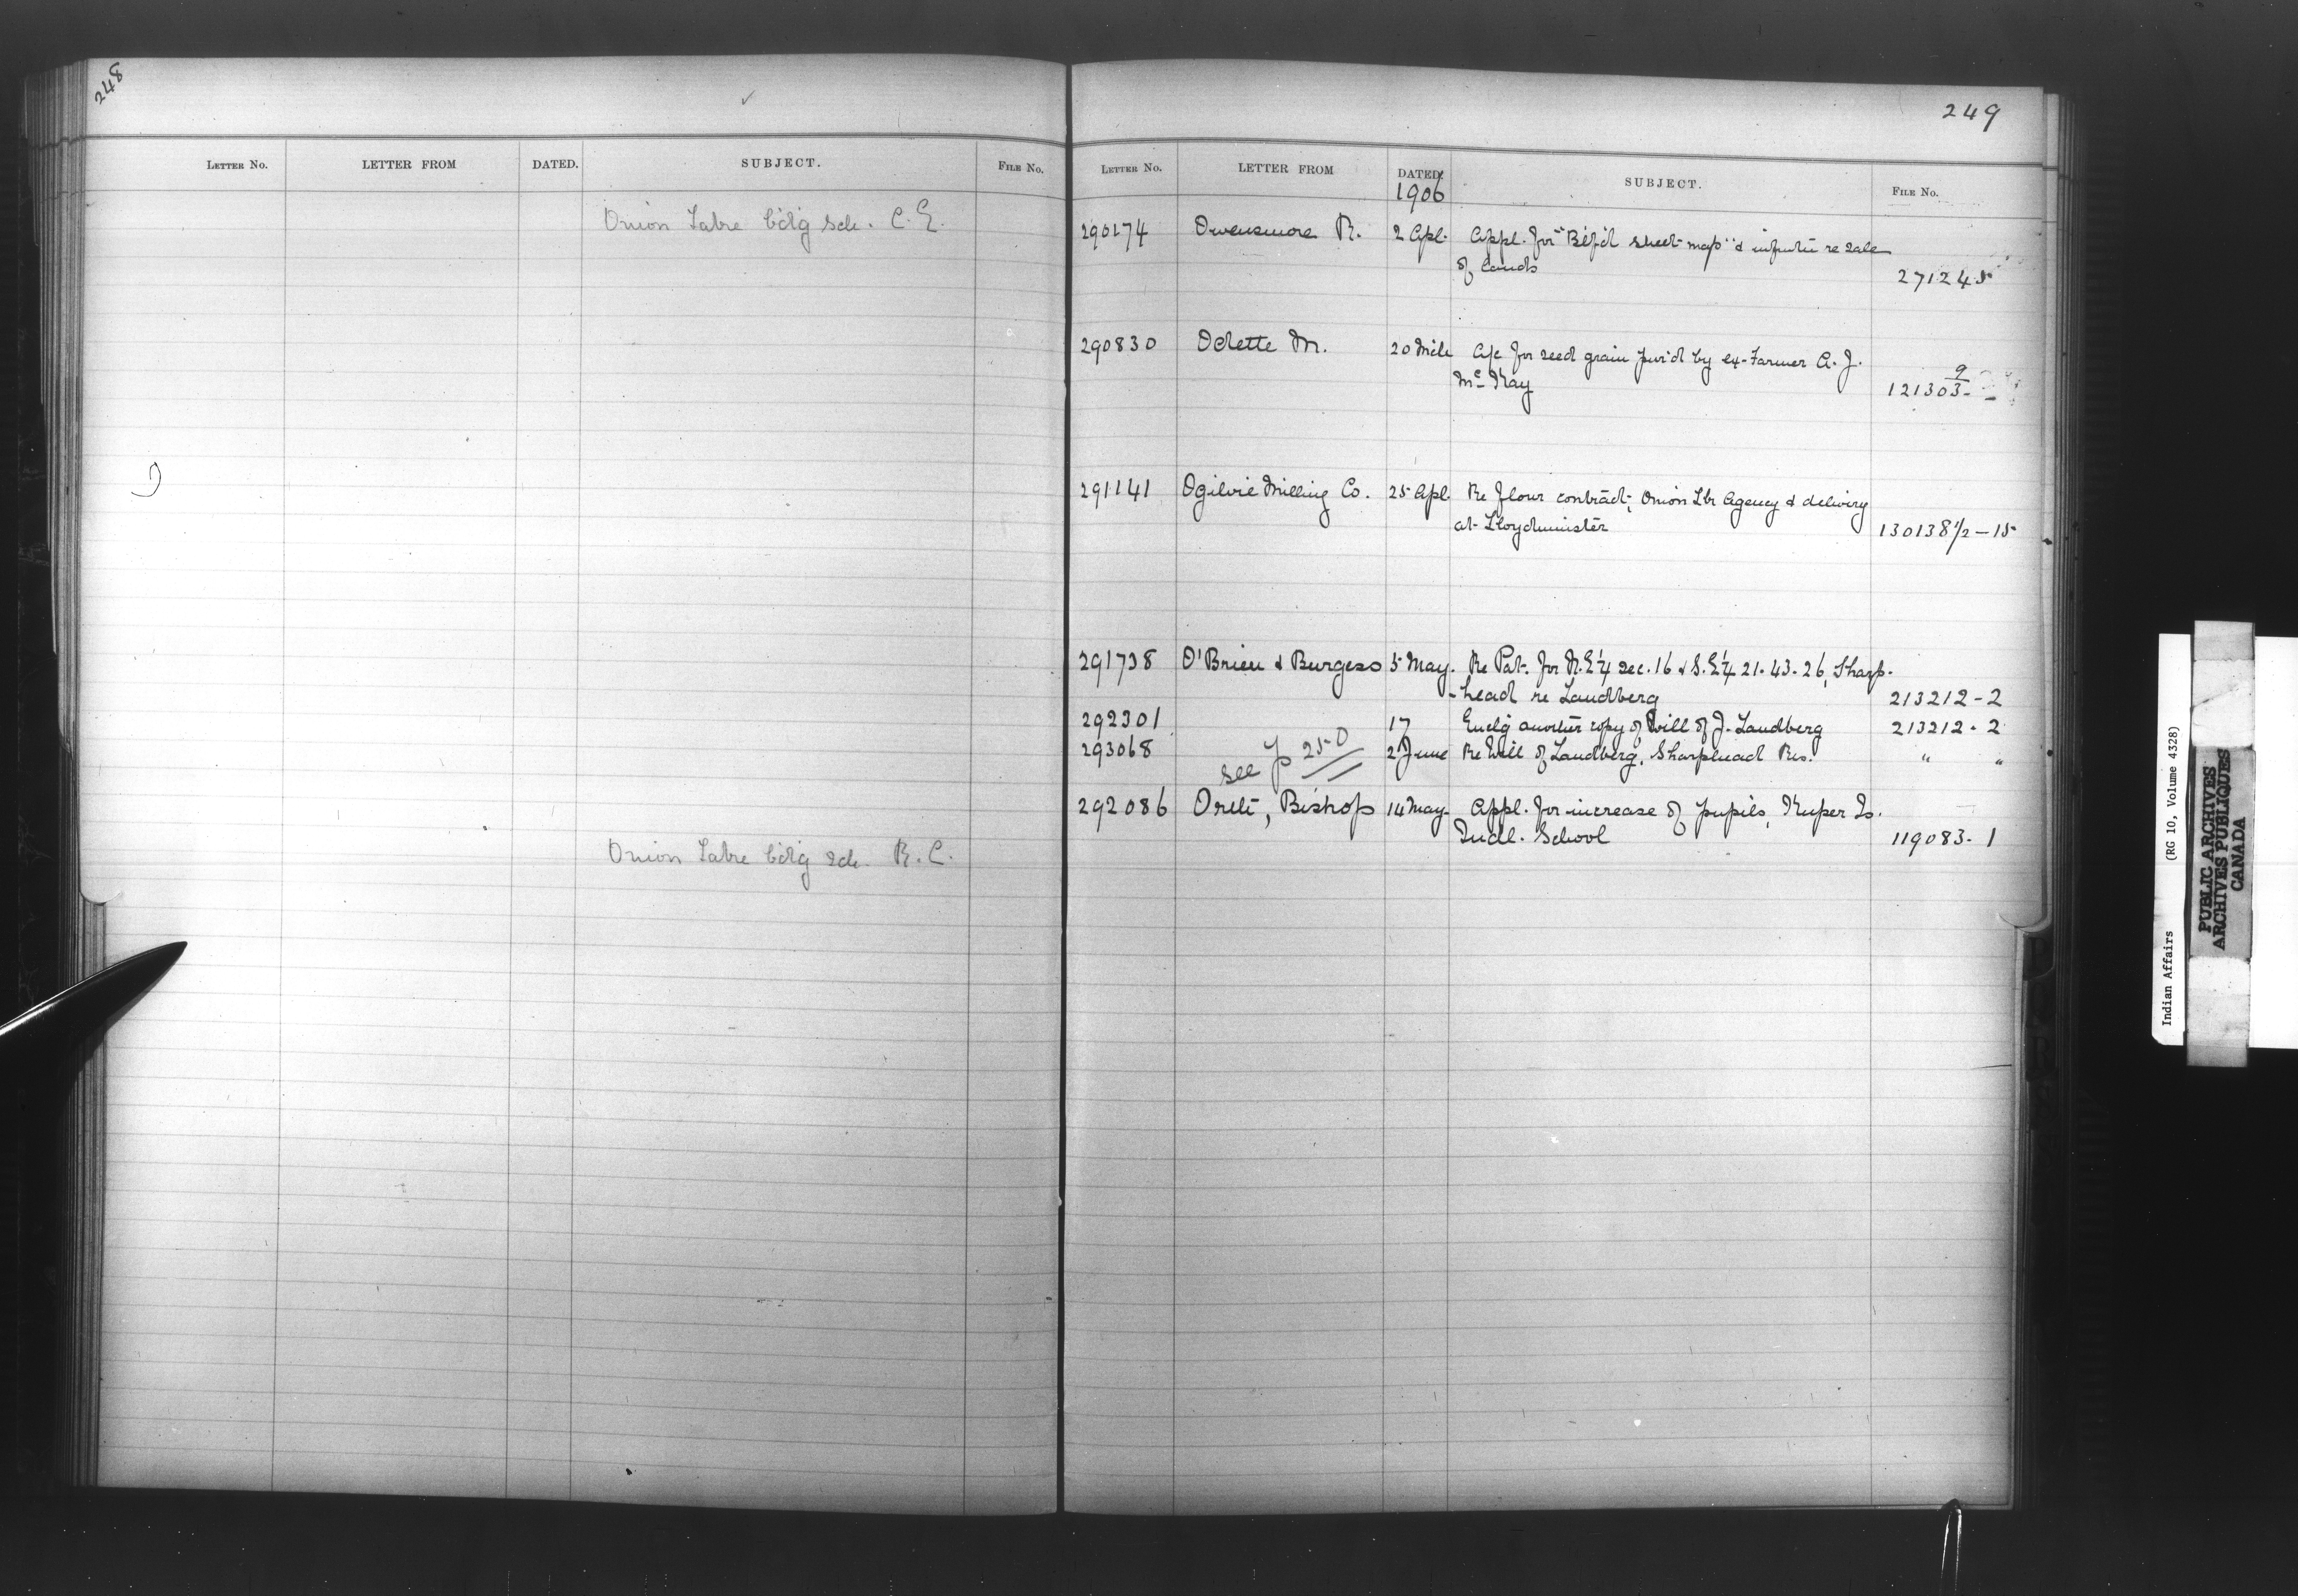 248
LETTER NO. LETTER FROM DATED. SUBJECT. FILE NO.
Onion Lake bdg sch. C. E.
Onion Lake bdg sch. R. C.
249
LETTER NO. LETTER FROM DATED. SUBJECT. FILE NO.
1906
290174 Owensmore R. 2 Apl. Appl. for "Bltf'd sheet map" & infmtn re sale
of lands 271245
290830 Odette M. 20 Mch A/c for seed grain pur'd by ex-Farmer A. J.
McKay 121303-9
291141 Ogilvie Milling Co. 25 Apl. Re flour contract, Onion Lk Agency & delivery
at Lloydminster 130138 1/2 - 15
291738 O'Brien & Burgess 5 May. Re Pat. for N.E 1/4 sec. 16 & S.E 1/4 21-43-26, Sharp-
-head re Landberg 213212-2
292301 17 Enclg another copy of Will of J. Landberg 213212-2
293068 see p 250 2 June Re Will of Landberg, Sharphead Res. " "
292086 Orth, Bishop 14 May. Appl. for increase of pupils, Kuper Is.
Indl. School 119083-1
Indian Affairs (RG 10, Volume 4328)
PUBLIC ARCHIVES
ARCHIVES PUBLIQUES
CANADA